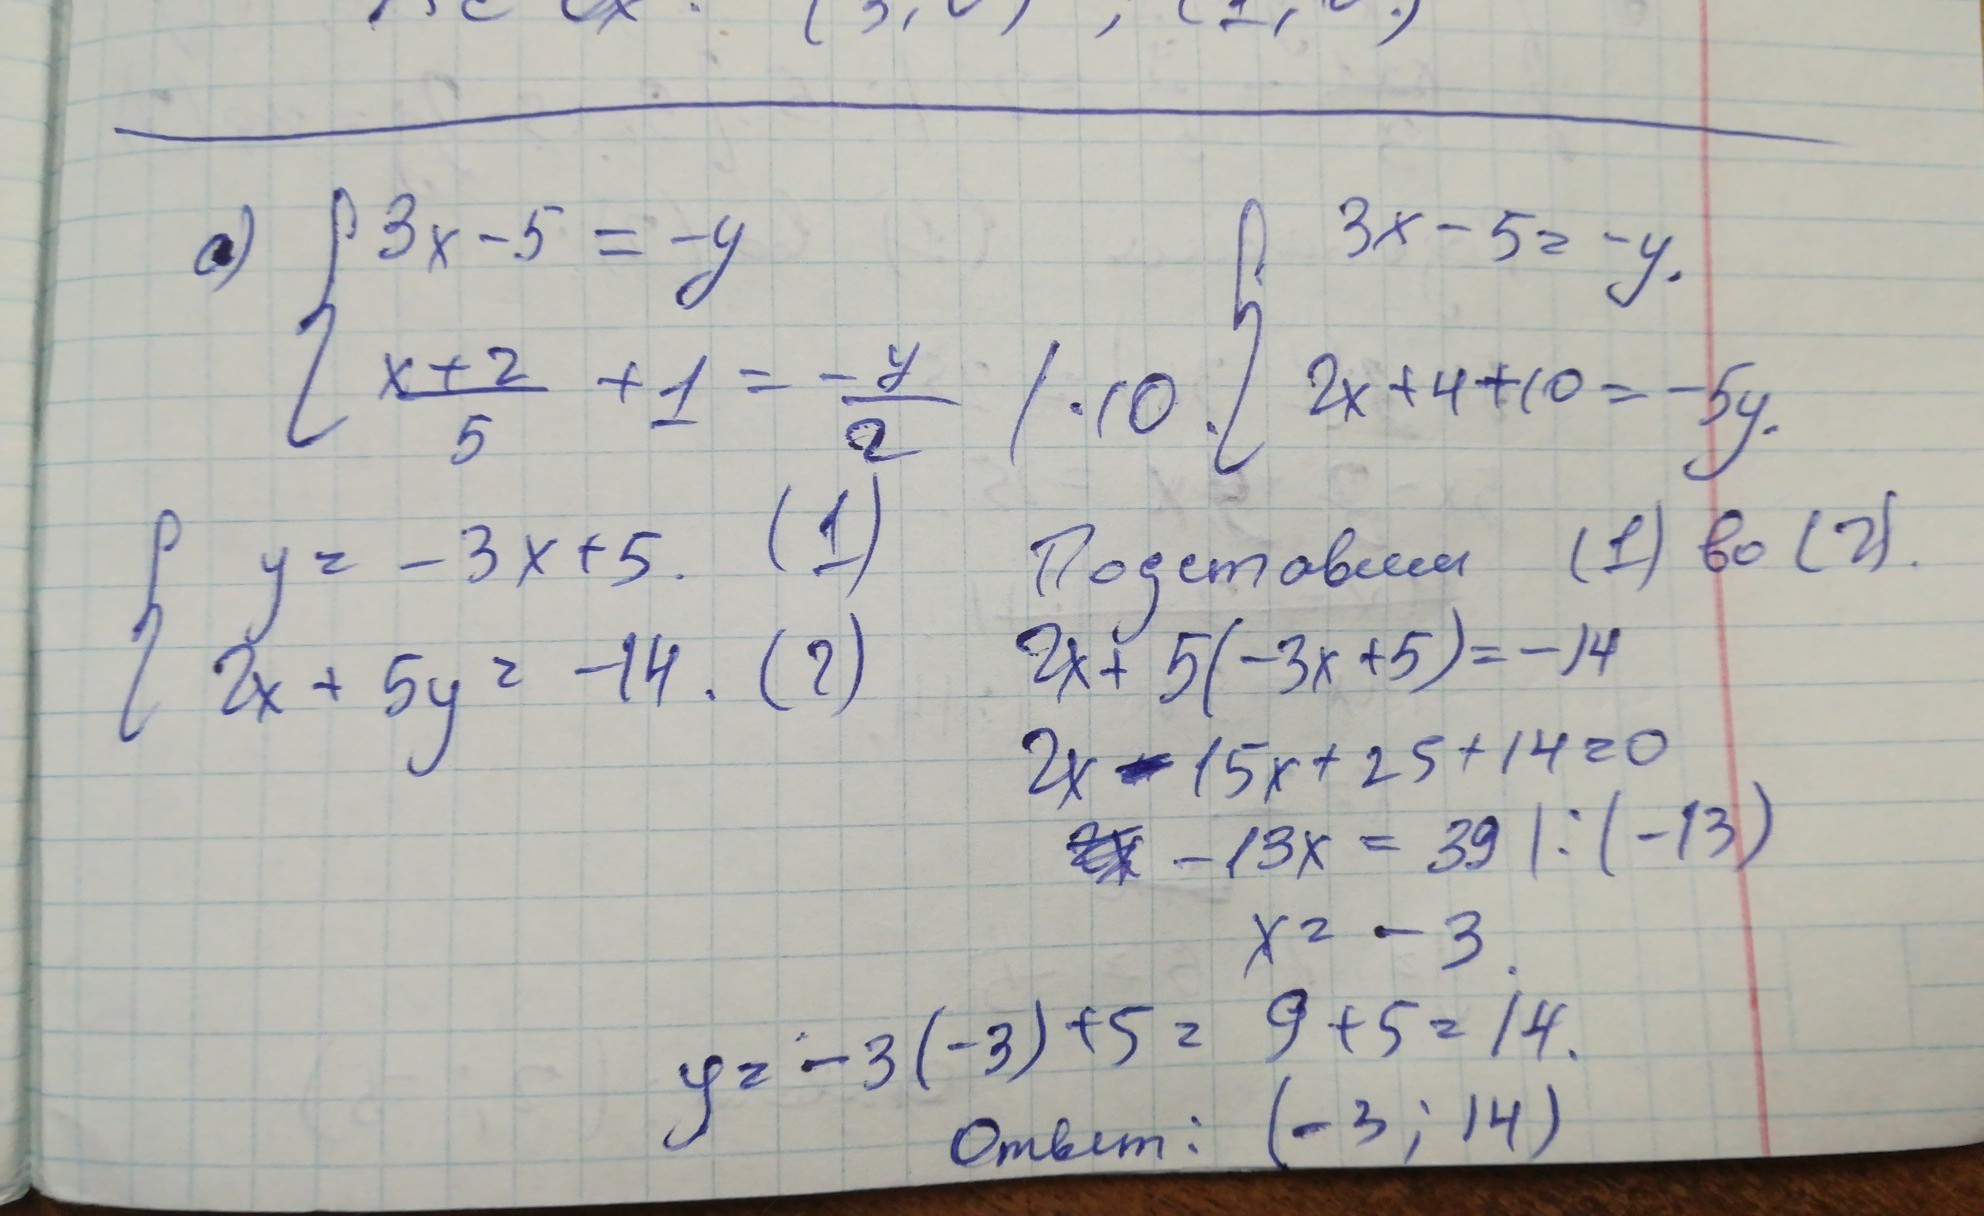 а) { 3x - 5 = -y
x+2/5 + 1 = -y/2 / ·10.
{ 3x - 5 = -y.
2x + 4 + 10 = -5y.
{ y = -3x + 5. (1)
2x + 5y = -14. (2)
Подставим (1) во (2).
2x + 5(-3x + 5) = -14
2x - 15x + 25 + 14 = 0
-13x = 39 |:(-13)
x = -3.
y = -3(-3) + 5 = 9 + 5 = 14.
Ответ: (-3; 14)